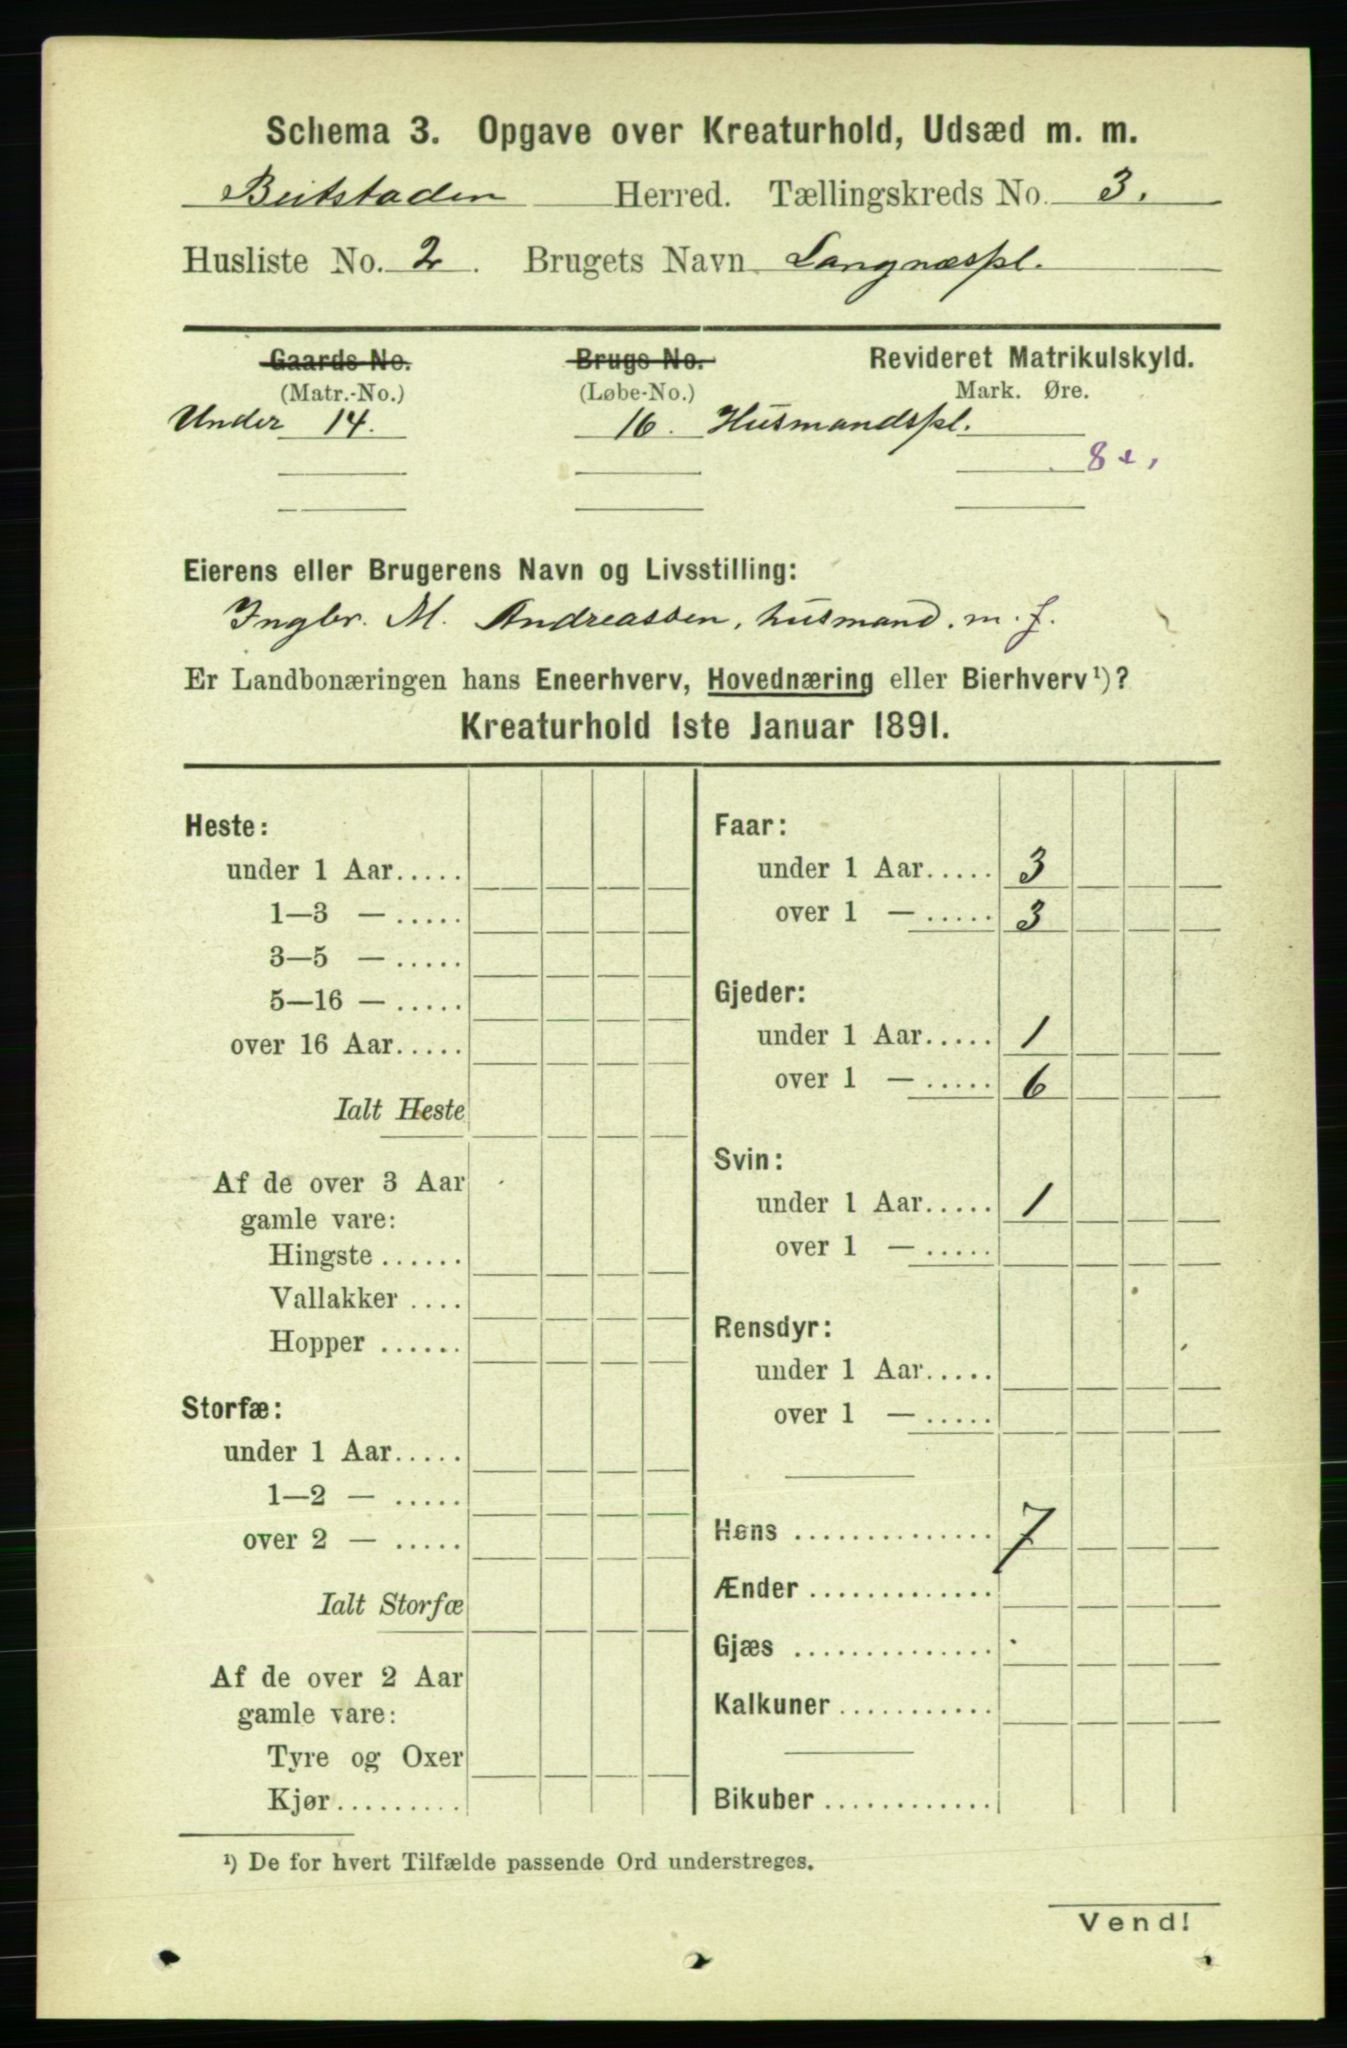 Schema 3. Opgave over Kreaturhold, Udsæd m. m.
Beitstaden Herred. Tællingskreds No. 3.
Husliste No. 2. Brugets Navn Langnæspl.
Gaards No. Brugs No. Revideret Matrikulskyld.
(Matr.-No.) (Løbe-No.) Mark. Øre.
Under 14. 16. Husmandspl.
Eierens eller Brugerens Navn og Livsstilling:
Ingbr. M. Andreassen, husmand. m. f.
Er Landbonæringen hans Eneerhverv, Hovednæring eller Bierhverv¹)?
Kreaturhold 1ste Januar 1891.
Heste:
under 1 Aar.....
1—3 — .....
3—5 — .....
5—16 — .....
over 16 Aar.....
Ialt Heste
Af de over 3 Aar
gamle vare:
Hingste ......
Vallakker ....
Hopper ......
Storfæ:
under 1 Aar.....
1—2 — .....
over 2 — .....
Ialt Storfæ
Af de over 2 Aar
gamle vare:
Tyre og Oxer
Kjør.........
Faar:
under 1 Aar..... 3
over 1 — ..... 3
Gjeder:
under 1 Aar..... 1
over 1 — ..... 6
Svin:
under 1 Aar..... 1
over 1 — .....
Rensdyr:
under 1 Aar.....
over 1 — .....
Høns .............. 7
Ænder .............
Gjæs ..............
Kalkuner ...........
Bikuber ............
¹) De for hvert Tilfælde passende Ord understreges.
Vend!